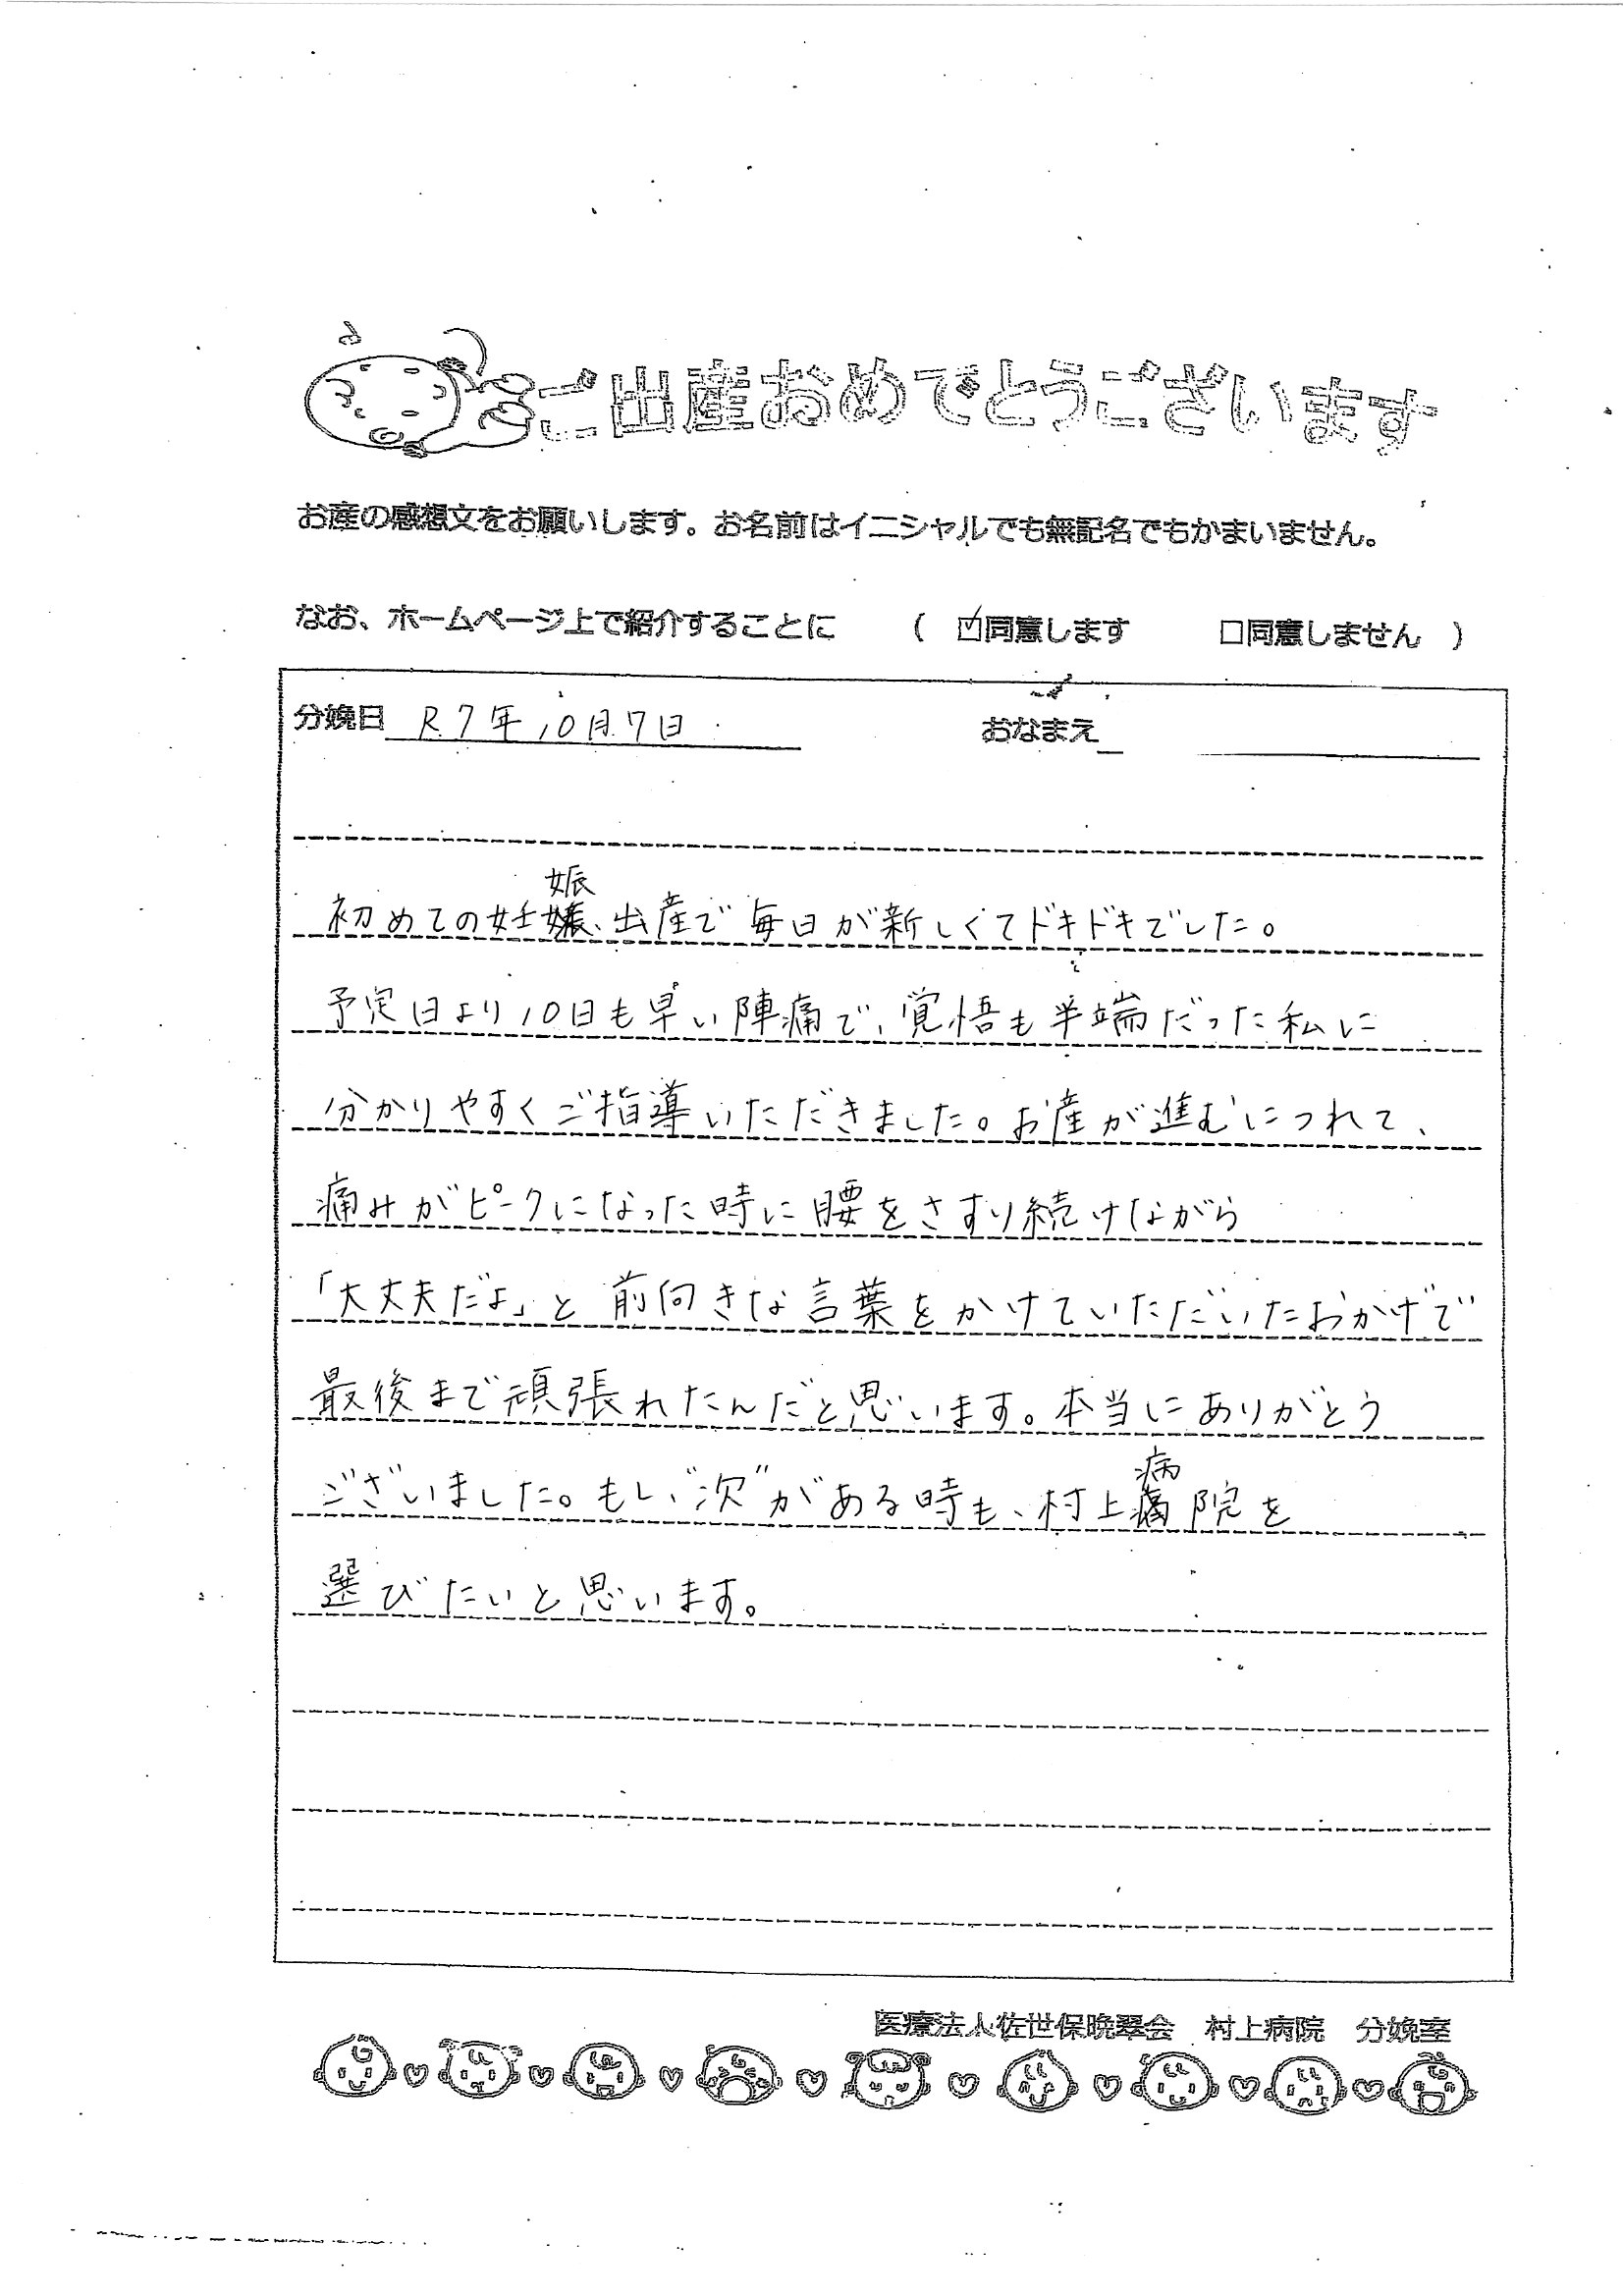 ご出産おめでとうございます
お産の感想文をお願いします。お名前はイニシャルでも無記名でもかまいません。
なお、ホームページ上で紹介することに （ ☑同意します □同意しません ）
分娩日 R.7年10月7日 おなまえ
娠
初めての妊娠、出産で毎日が新しくてドキドキでした。
予定日より10日も早い陣痛で、覚悟も半端だった私に
分かりやすくご指導いただきました。お産が進むにつれて、
痛みがピークになった時に腰をさすり続けながら
「大丈夫だよ」と前向きな言葉をかけていただいたおかげで
最後まで頑張れたんだと思います。本当にありがとう
病
ございました。もし、“次”がある時も、村上痛院を
選びたいと思います。
医療法人佐世保晩翠会 村上病院 分娩室